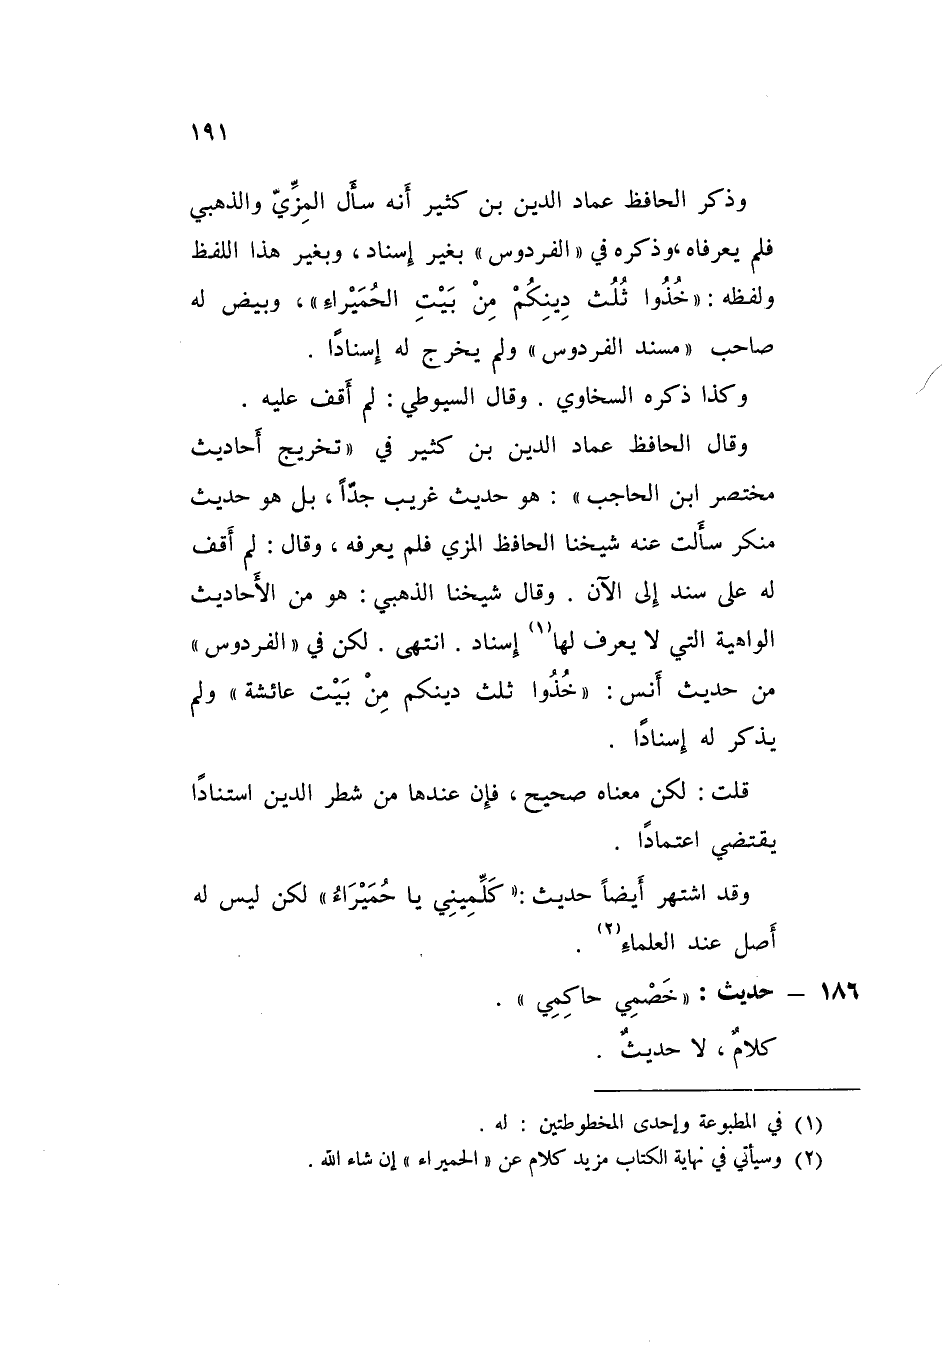 ١٩١
وذكر الحافظ عماد الدين بن كثير أَنه سأَل المِزِّيّ والذهبي
فلم يعرفاه ، وذكره في « الفردوس » بغير إسناد ، وبغير هذا اللفظ
ولفظه : « خُذُوا ثُلُث دِينِكُمْ مِنْ بَيْتِ الحُمَيْراءِ » ، وبيض له
صاحب « مسند الفردوس » ولم يخرج له إسنادًا .
وكذا ذكره السخاوي . وقال السيوطي : لم أَقف عليه .
وقال الحافظ عماد الدين بن كثير في « تخريج أَحاديث
مختصر ابن الحاجب » : هو حديث غريب جدّاً ، بل هو حديث
منكر سأَلت عنه شيخنا الحافظ المزي فلم يعرفه ، وقال : لم أَقف
له على سند إلى الآن . وقال شيخنا الذهبي : هو من الأَحاديث
الواهية التي لا يعرف لها(١) إسناد . انتهى . لكن في « الفردوس »
من حديث أَنس : « خُذُوا ثلث دينكم مِنْ بَيْت عائشة » ولم
يذكر له إسنادًا .
قلت : لكن معناه صحيح ، فإن عندها من شطر الدين استنادًا
يقتضي اعتمادًا .
وقد اشتهر أَيضاً حديث : « كَلِّمِينِي يا حُمَيْرَاءُ » لكن ليس له
أَصل عند العلماءِ(٢) .
١٨٦ – حديث : « خَصْمِي حاكِمِي » .
كلامٌ ، لا حديثٌ .
(١) في المطبوعة وإحدى المخطوطتين : له .
(٢) وسيأتي في نهاية الكتاب مزيد كلام عن « الحميراء » إن شاء الله .